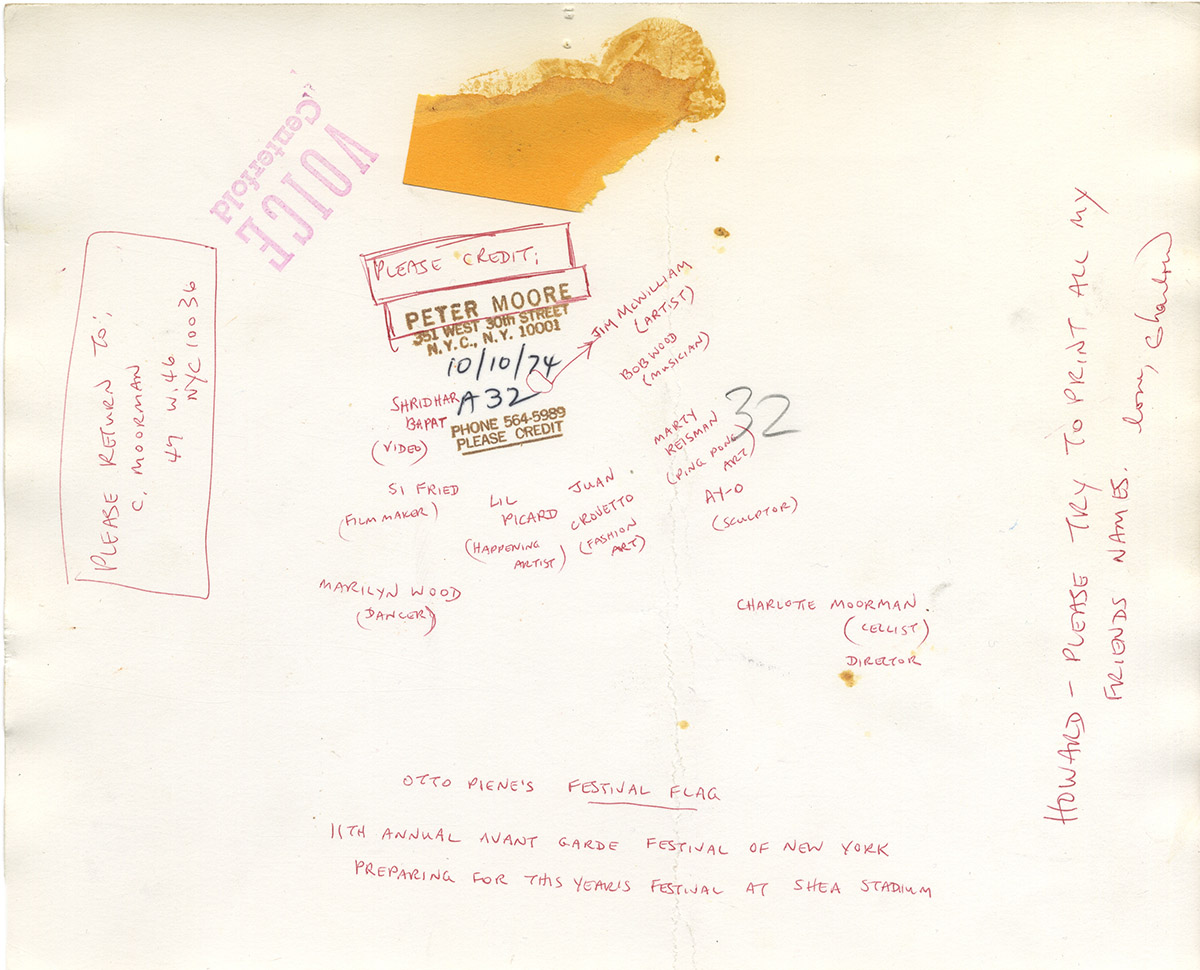 VOICE
Centerfold
PLEASE CREDIT:
PETER MOORE
351 WEST 30th STREET
N.Y.C., N.Y. 10001
10/10/74
A32
PHONE 564-5989
PLEASE CREDIT
32
PLEASE RETURN TO:
C. MOORMAN
47 W. 46
NYC 10036
JIM MCWILLIAM
(ARTIST)
BOB WOOD
(MUSICIAN)
SHRIDHAR
BAPAT
(VIDEO)
MARTY
REISMAN
(PING PONG
ART)
SI FRIED
(FILM MAKER)
LIL
PICARD
(HAPPENING
ARTIST)
JUAN
CROVETTO
(FASHION
ART)
AY-O
(SCULPTOR)
MARILYN WOOD
(DANCER)
CHARLOTTE MOORMAN.
(CELLIST)
DIRECTOR
OTTO PIENE'S FESTIVAL FLAG
11TH ANNUAL AVANT GARDE FESTIVAL OF NEW YORK
PREPARING FOR THIS YEAR'S FESTIVAL AT SHEA STADIUM
HOWARD - PLEASE TRY TO PRINT ALL MY
FRIENDS NAMES. love, Charlotte